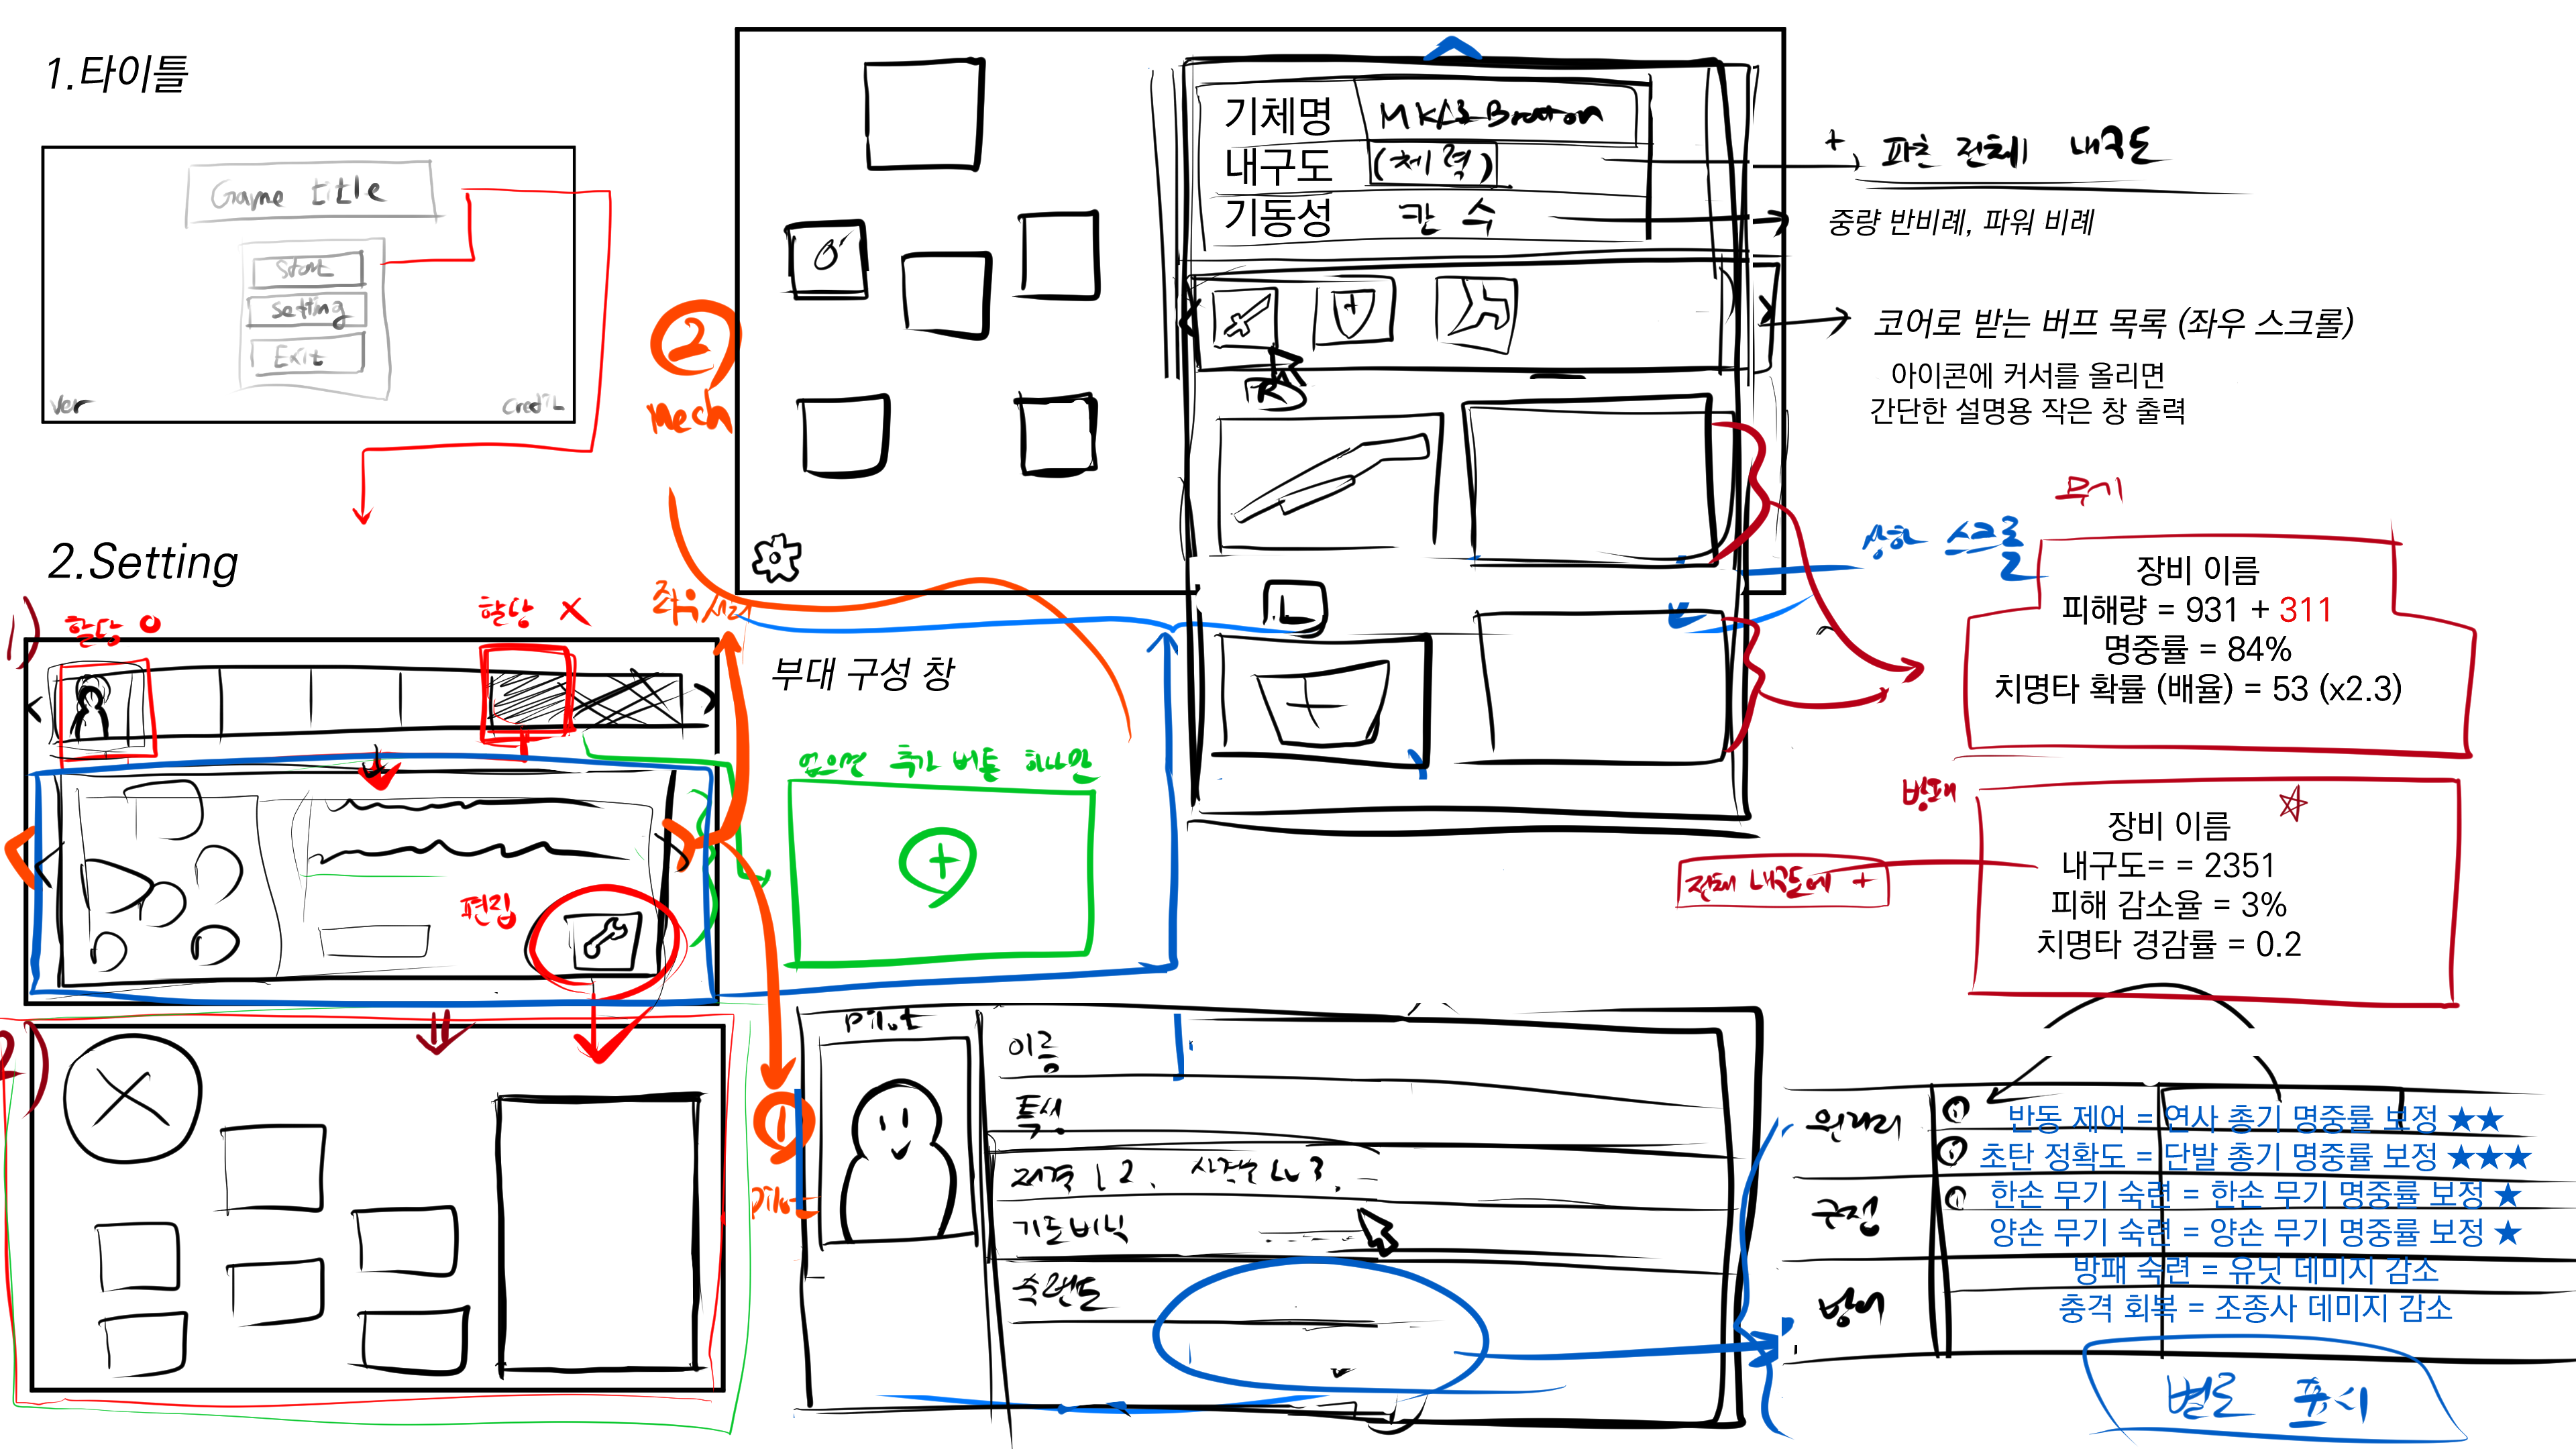 1.타이틀
Game title
Start
Setting
Exit
Ver
Credit
2.Setting
1)
할당 O
할당 X
편집
2)
좌우 스크롤
부대 구성 창
없으면 추가 버튼 하나만
+
2
Mech
기체명
내구도 (체력)
기동성 칸 수
+, 파츠 전체 내구도
중량 반비례, 파워 비례
코어로 받는 버프 목록 (좌우 스크롤)
아이콘에 커서를 올리면
간단한 설명용 작은 창 출력
R
L
상하 스크롤
무기
장비 이름
피해량 = 931 + 311
명중률 = 84%
치명타 확률 (배율) = 53 (x2.3)
방패
장비 이름
내구도= = 2351
피해 감소율 = 3%
치명타 경감률 = 0.2
전체 내구도에 +
1
Pilot
Pilot
이름
특성
저격 L2, 사격술 Lv 3,
기도비닉
숙련도
원거리
반동 제어 = 연사 총기 명중률 보정 ★★
초탄 정확도 = 단발 총기 명중률 보정 ★★★
근접
한손 무기 숙련 = 한손 무기 명중률 보정 ★
양손 무기 숙련 = 양손 무기 명중률 보정 ★
방어
방패 숙련 = 유닛 데미지 감소
충격 회복 = 조종사 데미지 감소
별로 표시